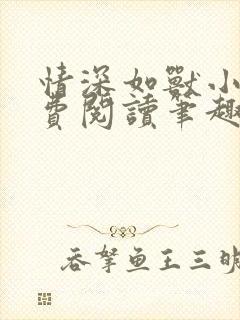 情深如獸小
費閱讀筆趣
吞拏鱼王三明